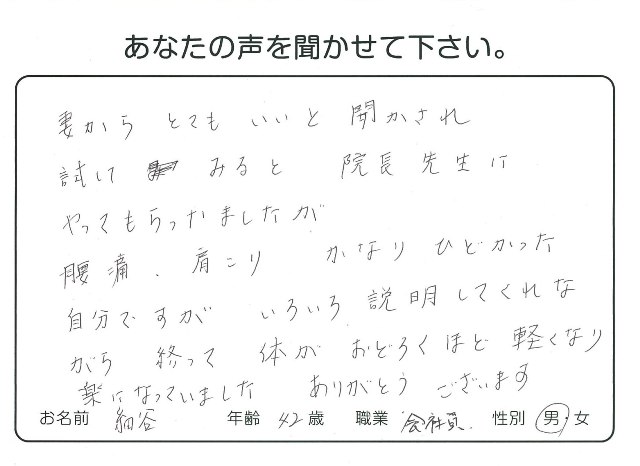 あなたの声を聞かせて下さい。
妻から とても いいと 聞かされ
試しに みると 院長先生に
やってもらっかましたが
腰痛、肩こり かなり ひどかった
自分ですが いろいろ 説明してくれな
がら 終って 体が おどろくほど 軽くなり
楽になっていました ありがとう ございます
お名前 細谷 年齢 42歳 職業 会社員. 性別 男・女